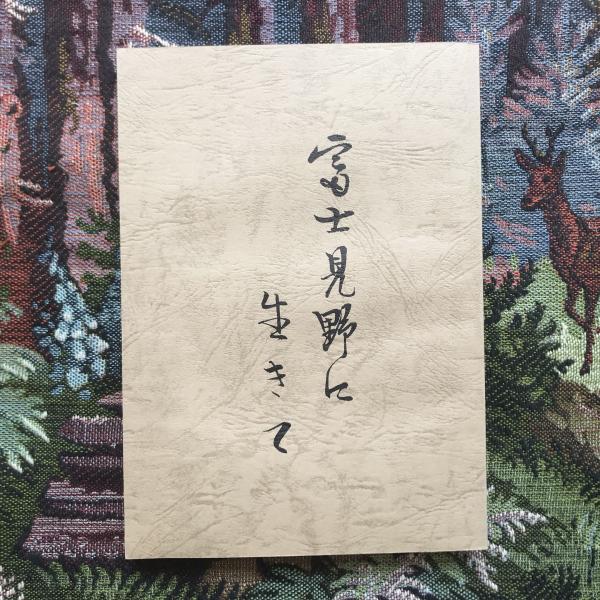 富士見野に
生きて